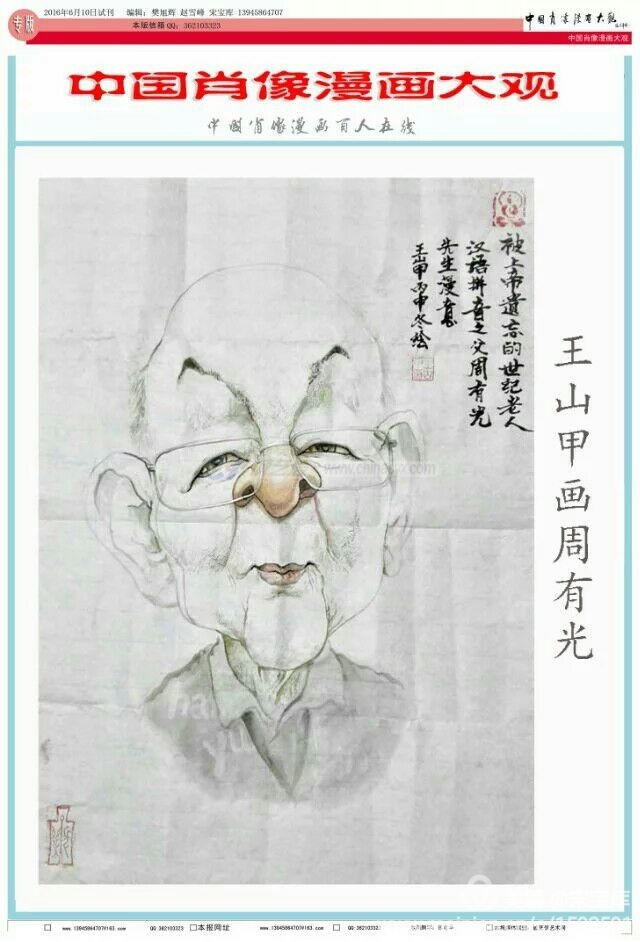 专版
2016年6月10日试刊 编辑：樊旭辉 赵雪峰 宋宝库 13945864707
本版信箱QQ：362103323
中国肖像漫画大观
中国肖像漫画大观
中国肖像漫画百人在线
被上帝遗忘的世纪老人
汉语拼音之父周有光
先生漫意
王山甲丙申冬绘
王山甲画周有光
han
yu
www.13945864707@163.com QQ 362103323 本报网址 www.13945864707@163.com QQ 362103323